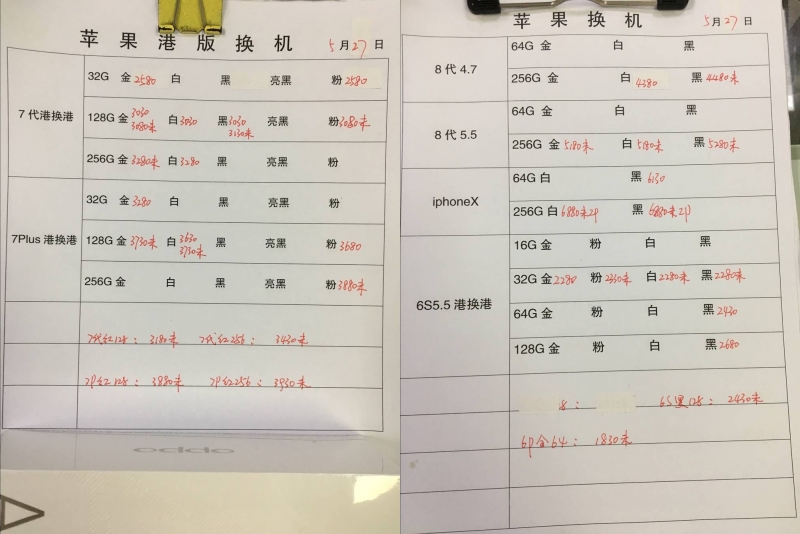 苹果港版换机
5月27日
7代港换港
32G 金2580 白 黑 亮黑 粉2580
128G 金3030 3080未 白3030 黑3030 3130未 亮黑 粉3080未
256G 金3280未 白3280 黑 亮黑 粉
7Plus港换港
32G 金3280 白 黑 亮黑 粉
128G 金3730未 白3630 3730未 黑 亮黑 粉3680
256G 金 白 黑 亮黑 粉3880未
7代红128：3180未 7代红256：3430未
7P红128：3880未 7P红256：3930未
oppo
苹果换机
5月27日
8代4.7
64G 金 白 黑
256G 金 白4380 黑4480未
8代5.5
64G 金 白 黑
256G 金5180未 白5180未 黑5280未
iphoneX
64G 白 黑6130
256G 白6880未2P 黑6880未2P
6S5.5港换港
16G 金 粉 白 黑
32G 金2280 粉2350未 白2280未 黑2280未
64G 金 粉 白 黑2430
128G 金 粉 白 黑2680
8： 6S黑128：2430未
6P金64：1830未